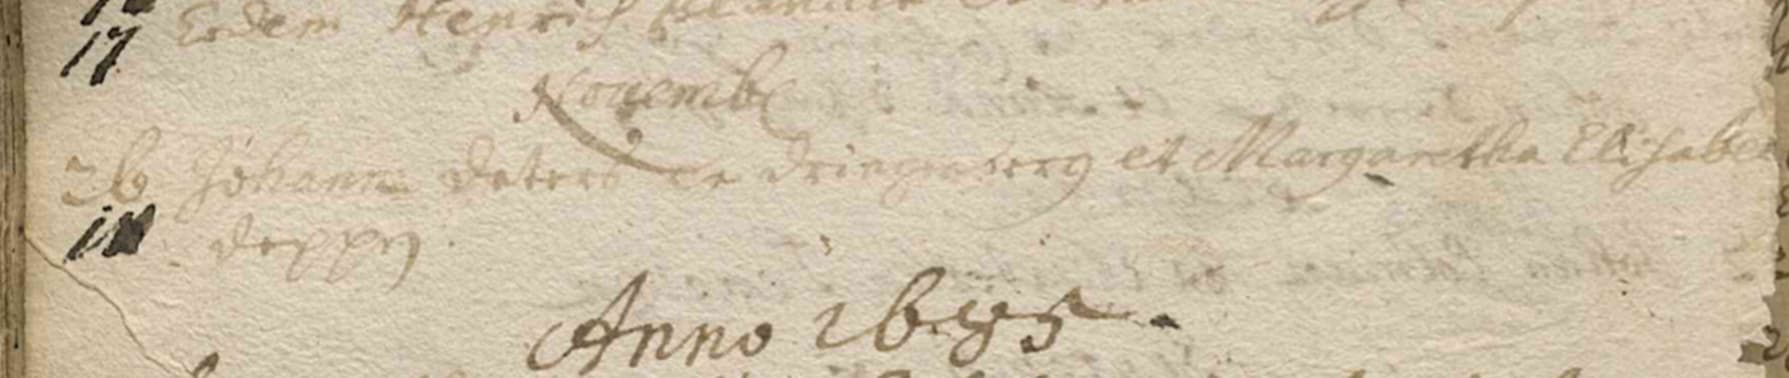 17 Eodem Henrich
Novemb
26 Johann Deters de Dringenberg et Margaretha Elisabet
18 Deppen
Anno 1685.